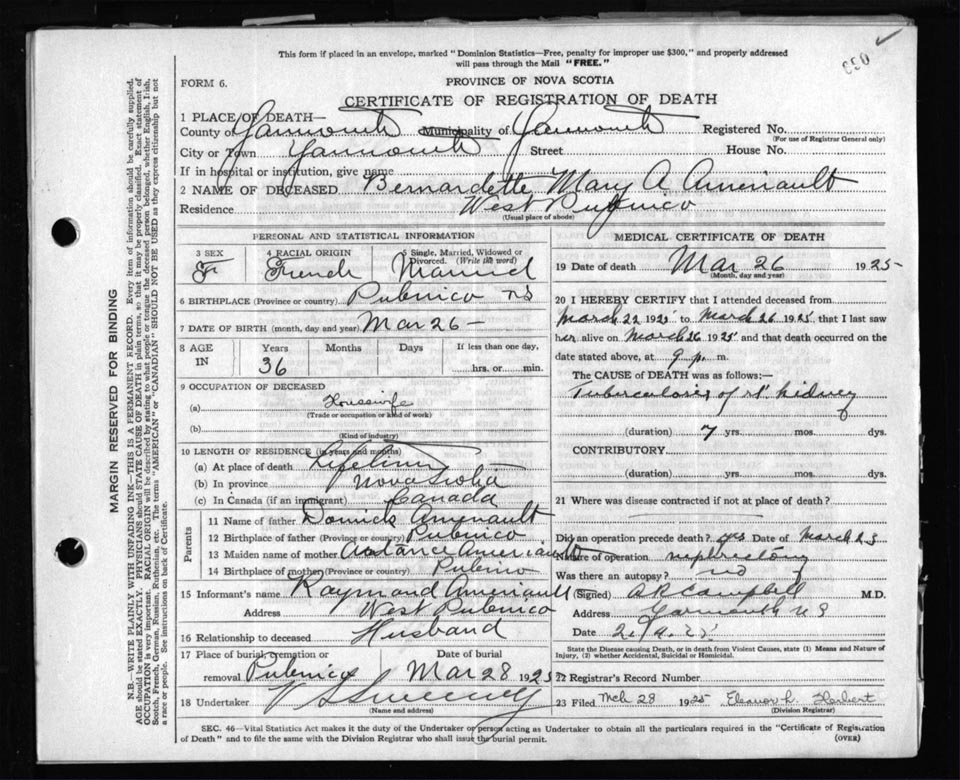 This form if placed in an envelope, marked "Dominion Statistics—Free, penalty for improper use $300," and properly addressed
will pass through the Mail "FREE."
FORM 6.
PROVINCE OF NOVA SCOTIA
CERTIFICATE OF REGISTRATION OF DEATH
1 PLACE OF DEATH—
County of Yarmouth Municipality of Yarmouth Registered No.
(For use of Registrar General only)
City or Town Yarmouth Street House No.
If in hospital or institution, give name
2 NAME OF DECEASED Bernardette Mary A. Ameriault
Residence West Pubnico
(Usual place of abode)
PERSONAL AND STATISTICAL INFORMATION
3 SEX F 4 RACIAL ORIGIN French 5 Single, Married, Widowed or Divorced. (Write the word) Married
6 BIRTHPLACE (Province or country) Pubnico NS
7 DATE OF BIRTH (month, day and year) Mar 26 —
8 AGE IN Years 36 Months Days If less than one day, hrs. or min.
9 OCCUPATION OF DECEASED
(a) Housewife
(Trade or occupation or kind of work)
(b)
(Kind of industry)
10 LENGTH OF RESIDENCE (in years and months)
(a) At place of death Lifetime
(b) In province Nova Scotia
(c) In Canada (if an immigrant) Canada
Parents
11 Name of father Amerault
12 Birthplace of father (Province or country) Pubnico
13 Maiden name of mother Ameriault
14 Birthplace of mother (Province or country) Pubnico
15 Informant's name Raymond Ameriault
Address West Pubnico
16 Relationship to deceased Husband
17 Place of burial, cremation or removal Pubnico Date of burial Mar 28 1925
18 Undertaker V S Sweeney
(Name and address)
MEDICAL CERTIFICATE OF DEATH
19 Date of death Mar 26 1925
(Month, day and year)
20 I HEREBY CERTIFY that I attended deceased from
March 22 1925 to March 26 1925 that I last saw
her alive on March 26 1925 and that death occurred on the
date stated above, at 9 p. m.
The CAUSE of DEATH was as follows:—
Tuberculosis of rt kidney
(duration) 7 yrs. mos. dys.
CONTRIBUTORY
(duration) yrs. mos. dys.
21 Where was disease contracted if not at place of death?
Did an operation precede death? yes Date of March 23
Name of operation nephrectomy
Was there an autopsy? no
(Signed) A R Campbell M.D.
Address Yarmouth N S
Date
State the Disease causing Death, or in death from Violent Causes, state (1) Means and Nature of
Injury, (2) whether Accidental, Suicidal or Homicidal.
22 Registrar's Record Number
23 Filed Mch 28 1925 Eleanor L. Herbert
(Division Registrar)
SEC. 46—Vital Statistics Act makes it the duty of the Undertaker or person acting as Undertaker to obtain all the particulars required in the "Certificate of Registration
of Death" and to file the same with the Division Registrar who shall issue the burial permit. (OVER)
MARGIN RESERVED FOR BINDING
N.B.—WRITE PLAINLY WITH UNFADING INK—THIS IS A PERMANENT RECORD. Every item of information should be carefully supplied.
AGE should be stated EXACTLY. PHYSICIANS should STATE CAUSE OF DEATH in plain terms, so that it may be properly classified. Exact statement of
OCCUPATION is very important. RACIAL ORIGIN will be described by stating to what people or tongue the deceased person belonged, whether English, Irish,
Scotch, French, German, Russian, Ruthenian, etc. The terms "AMERICAN" or "CANADIAN" SHOULD NOT BE USED as they express citizenship but not
a race or people. See instructions on back of Certificate.